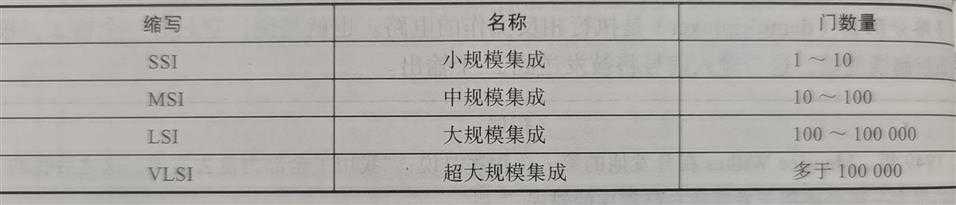 缩写 名称 门数量
SSI 小规模集成 1～10
MSI 中规模集成 10～100
LSI 大规模集成 100～100 000
VLSI 超大规模集成 多于100 000